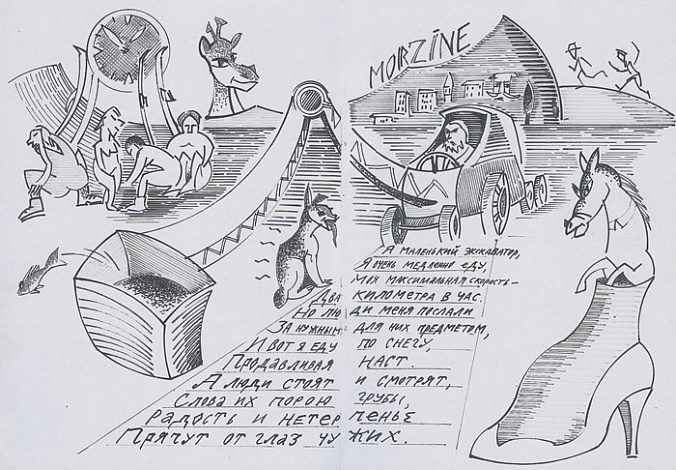 MORZINE
Я маленький экскаватор,
Я очень медленно еду,
Моя максимальная скорость –
Два километра в час.
Но люди меня послали
За нужным для них предметом,
И вот я еду по снегу,
Продавливая наст.
А люди стоят и смотрят,
Слова их порою грубы,
Радость и нетерпенье
Прячут от глаз чужих.